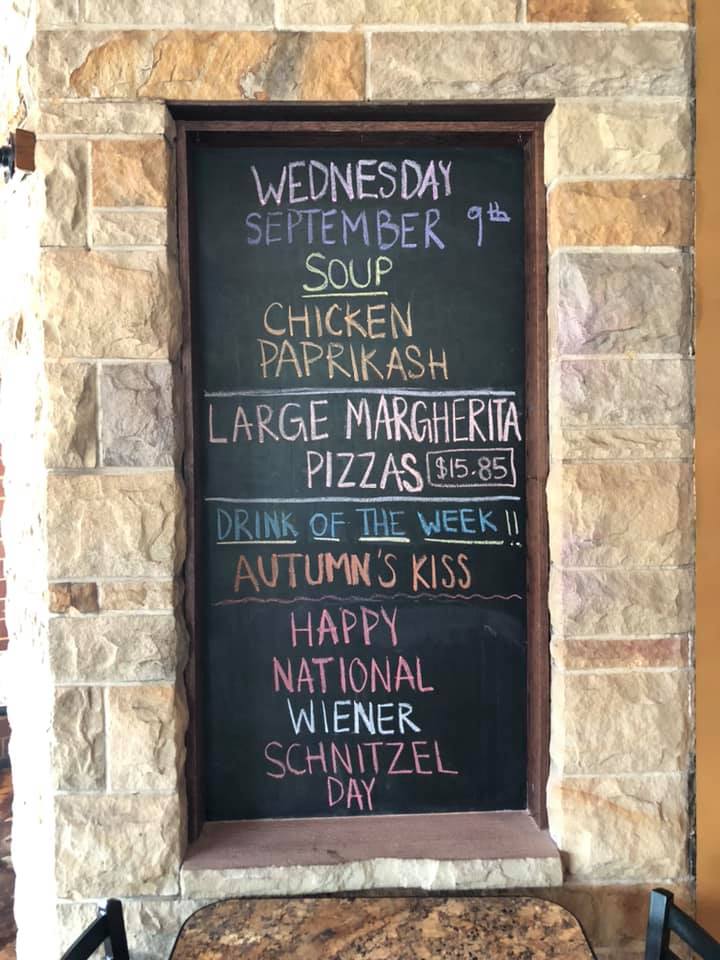 WEDNESDAY
SEPTEMBER 9th
SOUP
CHICKEN
PAPRIKASH
LARGE MARGHERITA
PIZZAS $15.85
DRINK OF THE WEEK !!
AUTUMN'S KISS
HAPPY
NATIONAL
WIENER
SCHNITZEL
DAY